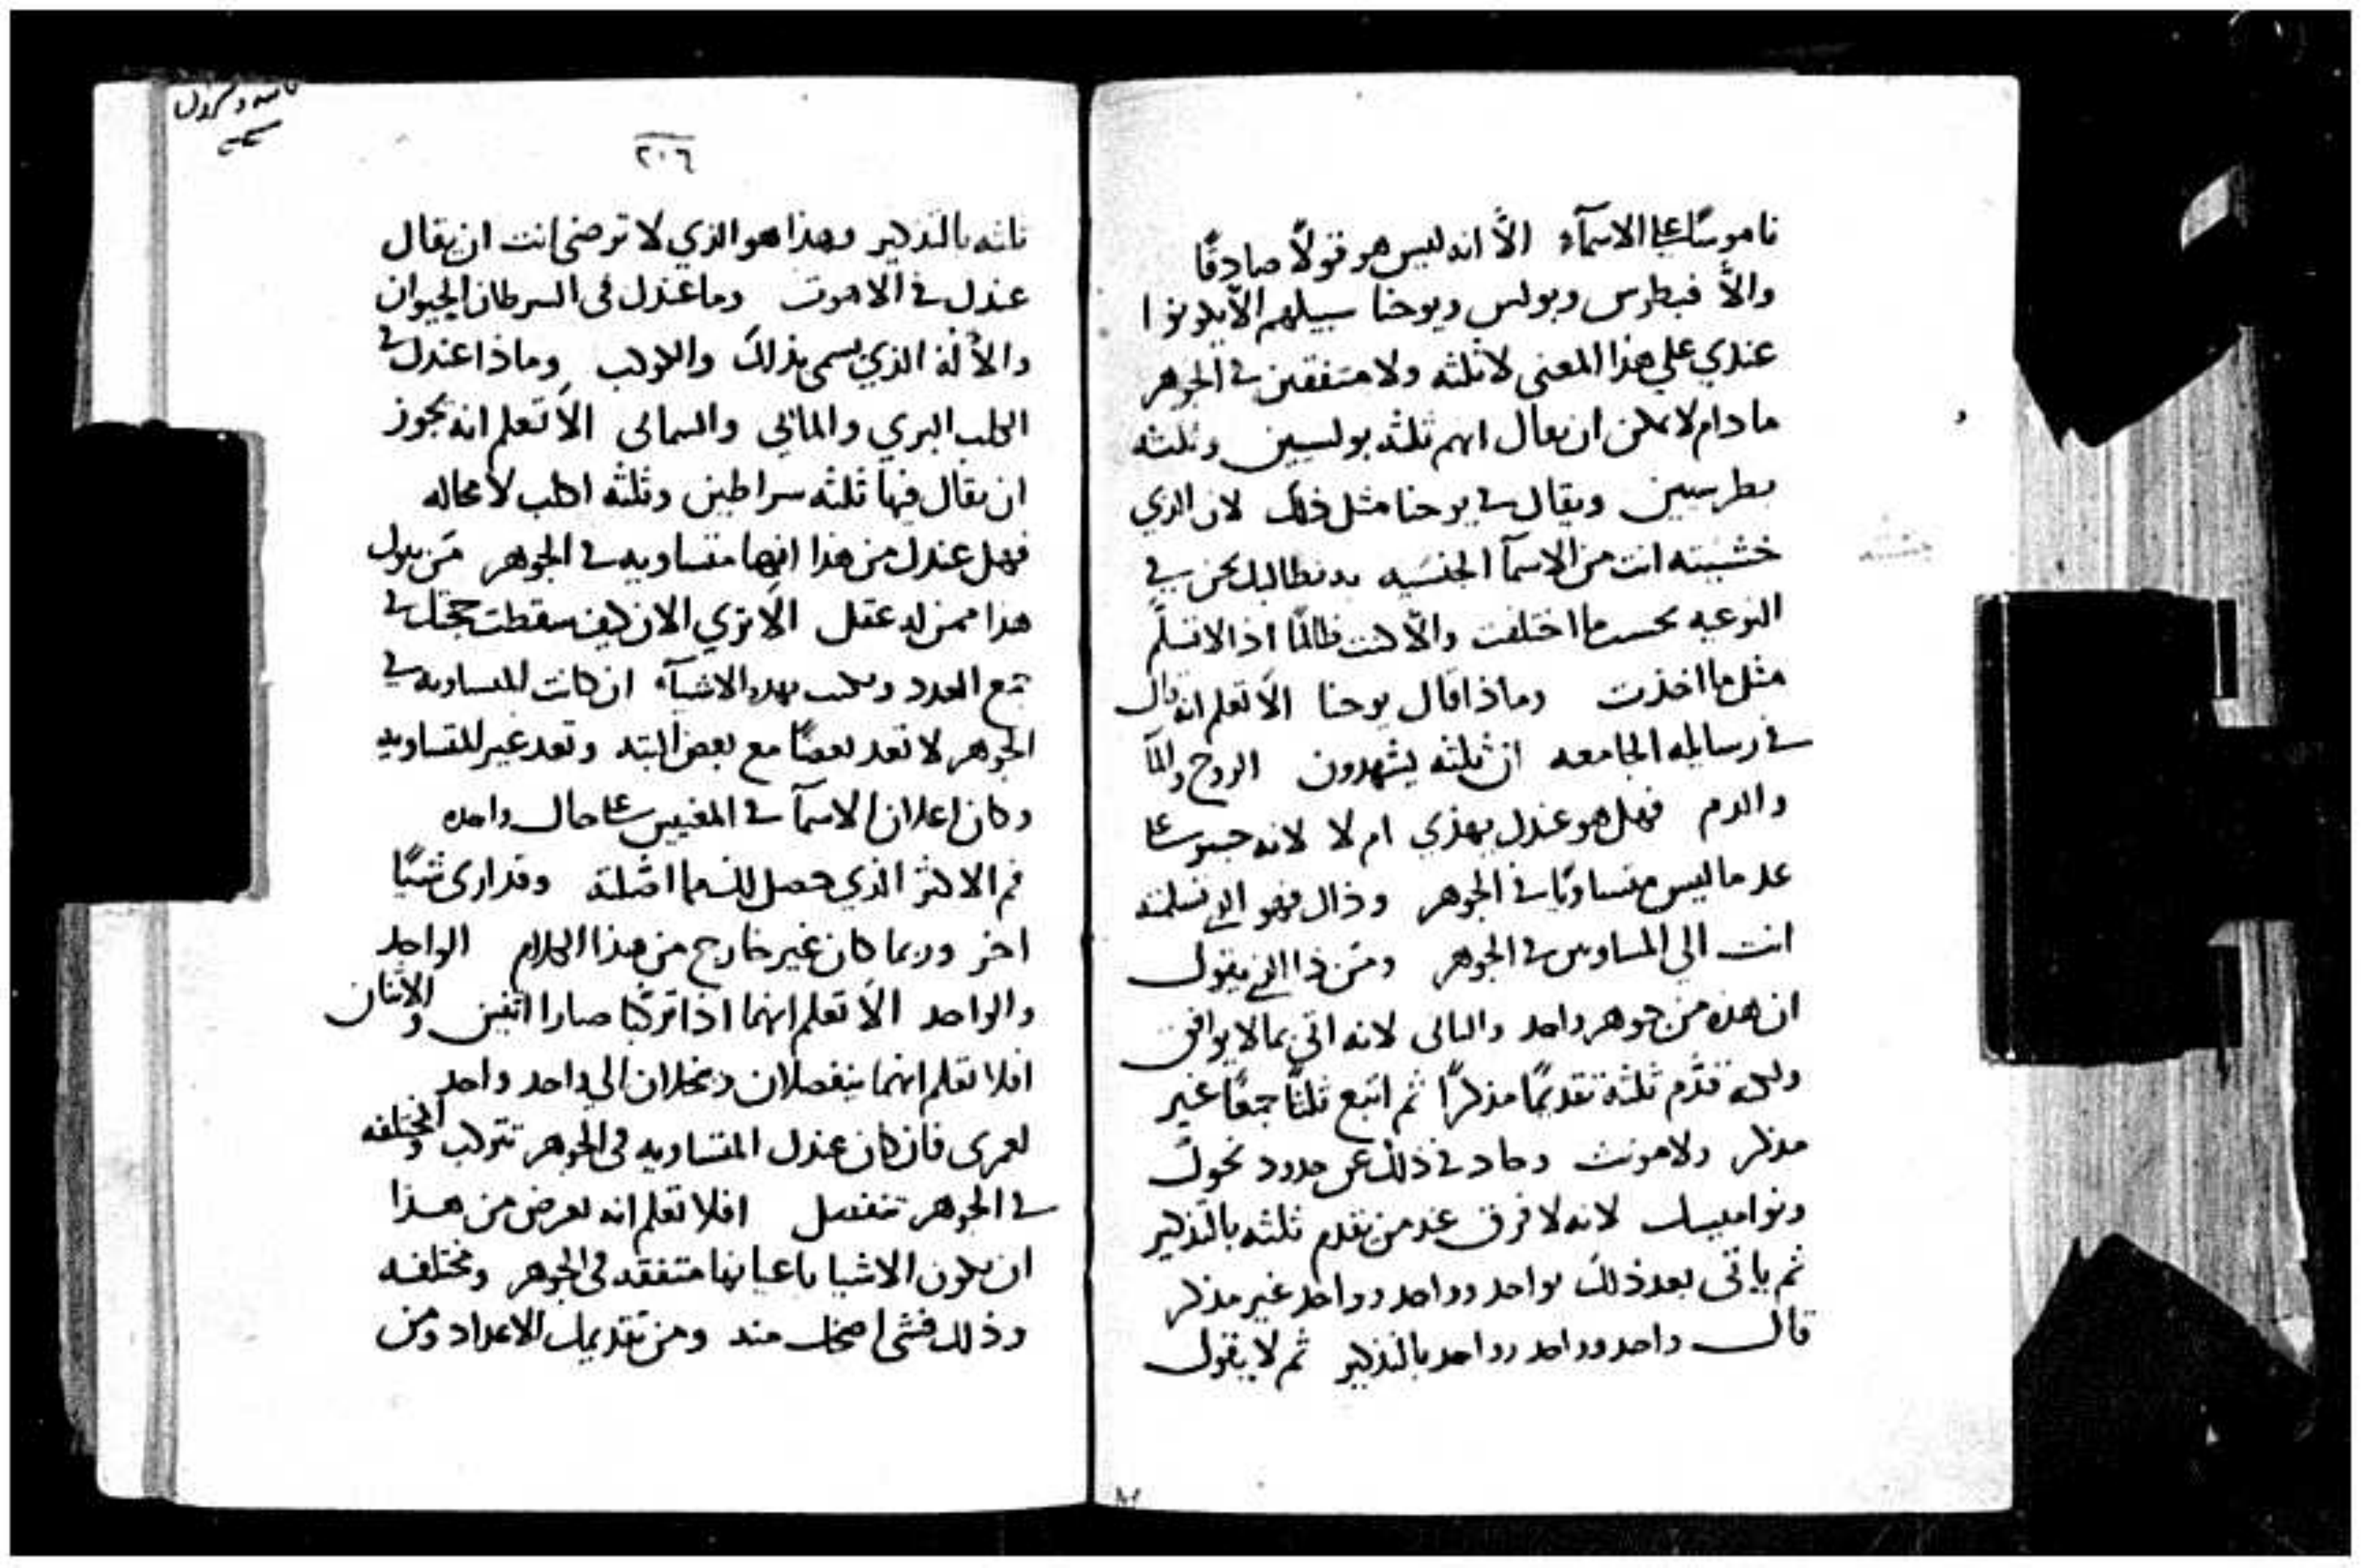 ناموسًا على الاسمآء الاَّ انه ليس هو قولاً صادقًا
والاَّ فبطرس وبولس ويوحنا سبيلهم الاّ يكونوا
عندي علي هذا المعني لا ثلثه ولا متفقين في الجوهر
ما دام لا يمكن ان يقال انهم ثلثه بولسيين وثلثه
بطرسيين ويقال في يوحنا مثل ذلك لان الذي
خشيته انت من الاسمآ الجنسيه نطالبك نحن في
النوعيه بحسب ما اختلفت والاّ كنت ظالمًا اذ الا تسلّم
مثل ما اخذت وماذا قال يوحنا الاَ تعلم انه قال
في رسايله الجامعه ان ثلثه يشهدون الروح والمآ
والدم فهل هو عندك يهذي ام لا لانه جسر على
عد ما ليس متساويًا في الجوهر وذاك فهو الذي
انت الي المساويين في الجوهر ومَن ذا الذي يقول
ان هذه من جوهر واحد والثاني لانه اتي بما لا يوافق
ولكنه قدَّم ثلثة تقديمًا مذكرًا ثم اتبع ثلثًا جمعًا غير
مذكر ولا مونث وحاد في ذلك عن حدود نحوك
ونواميسك لانه لا فرق عند من يقدم ثلثه بالتذكير
ثم ياتي بعد ذلك بواحد وواحد وواحد غير مذكر
قال واحد وواحد وواحد بالتذكير ثم لا يقول
٢٠٦
ثلثه بالتذكير وهذا هو الذي لا ترضى انت ان يقال
عندك في الاهوت وما عندك في السرطان الحيوان
والألة الذي يسمى بذلك والكوكب وماذا عندك في
الكلب البري والمائي والسمائي الاَ تعلم انه يجوز
ان يقال فيها ثلثه سراطين وثلثه اكلب لا محاله
فهل عندك من هذا انها متساويه في الجوهر مَن يقول
هذا ممن له عقل الاَ تري الان كيف سقطت حجتك في
جمع العدد بهذه الاشيآء ان كانت المتساويه في
الجوهر لا تعد بعضًا مع بعض البتة وتعد غير المتساويه
وكان اعلان الاسمآ في المعنيين على حال واحده
فم الاكثر الذي حصل لك مما اصّلته وقد ارى شيًا
اخر وربما كان غير خارج من هذا الكلام الواحد
والواحد الاَ تعلم انهما اذا تركبا صارا اثنين والاثنان
افلا تعلم انهما ينفصلان وينحلان الي واحد واحد
لعمرى فان كان عندك المتساويه في الجوهر تتركب والمختلفه
في الجوهر تنفصل افلا تعلم انه يعرض من هذا
ان يكون الاشيا باعيانها متفقه في الجوهر ومختلفه
وذلك فشى اضحك منه ومن تقديمك الاعداد ومن